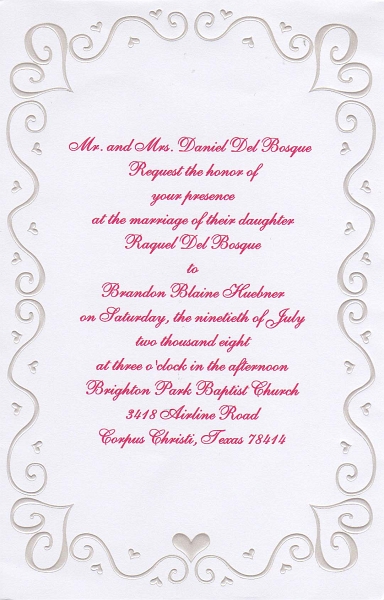 Mr. and Mrs. Daniel Del Bosque
Request the honor of
your presence
at the marriage of their daughter
Raquel Del Bosque
to
Brandon Blaine Huebner
on Saturday, the ninetieth of July
two thousand eight
at three o'clock in the afternoon
Brighton Park Baptist Church
3418 Airline Road
Corpus Christi, Texas 78414